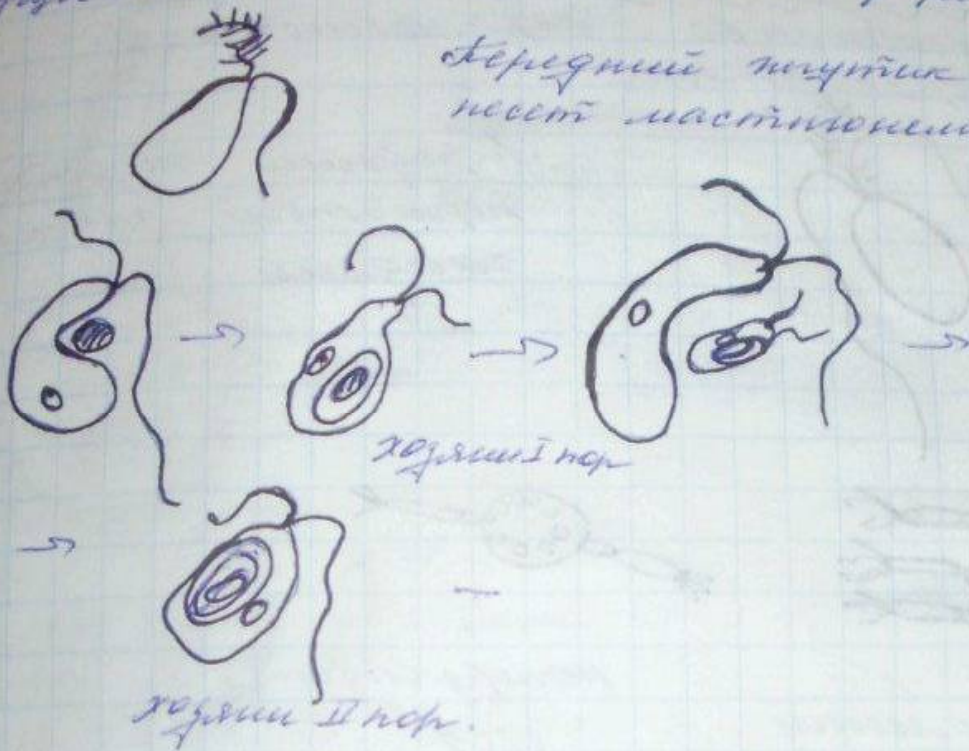 Передний жгутик
несет мастигонем
хозяин I пор
хозяин II пор.